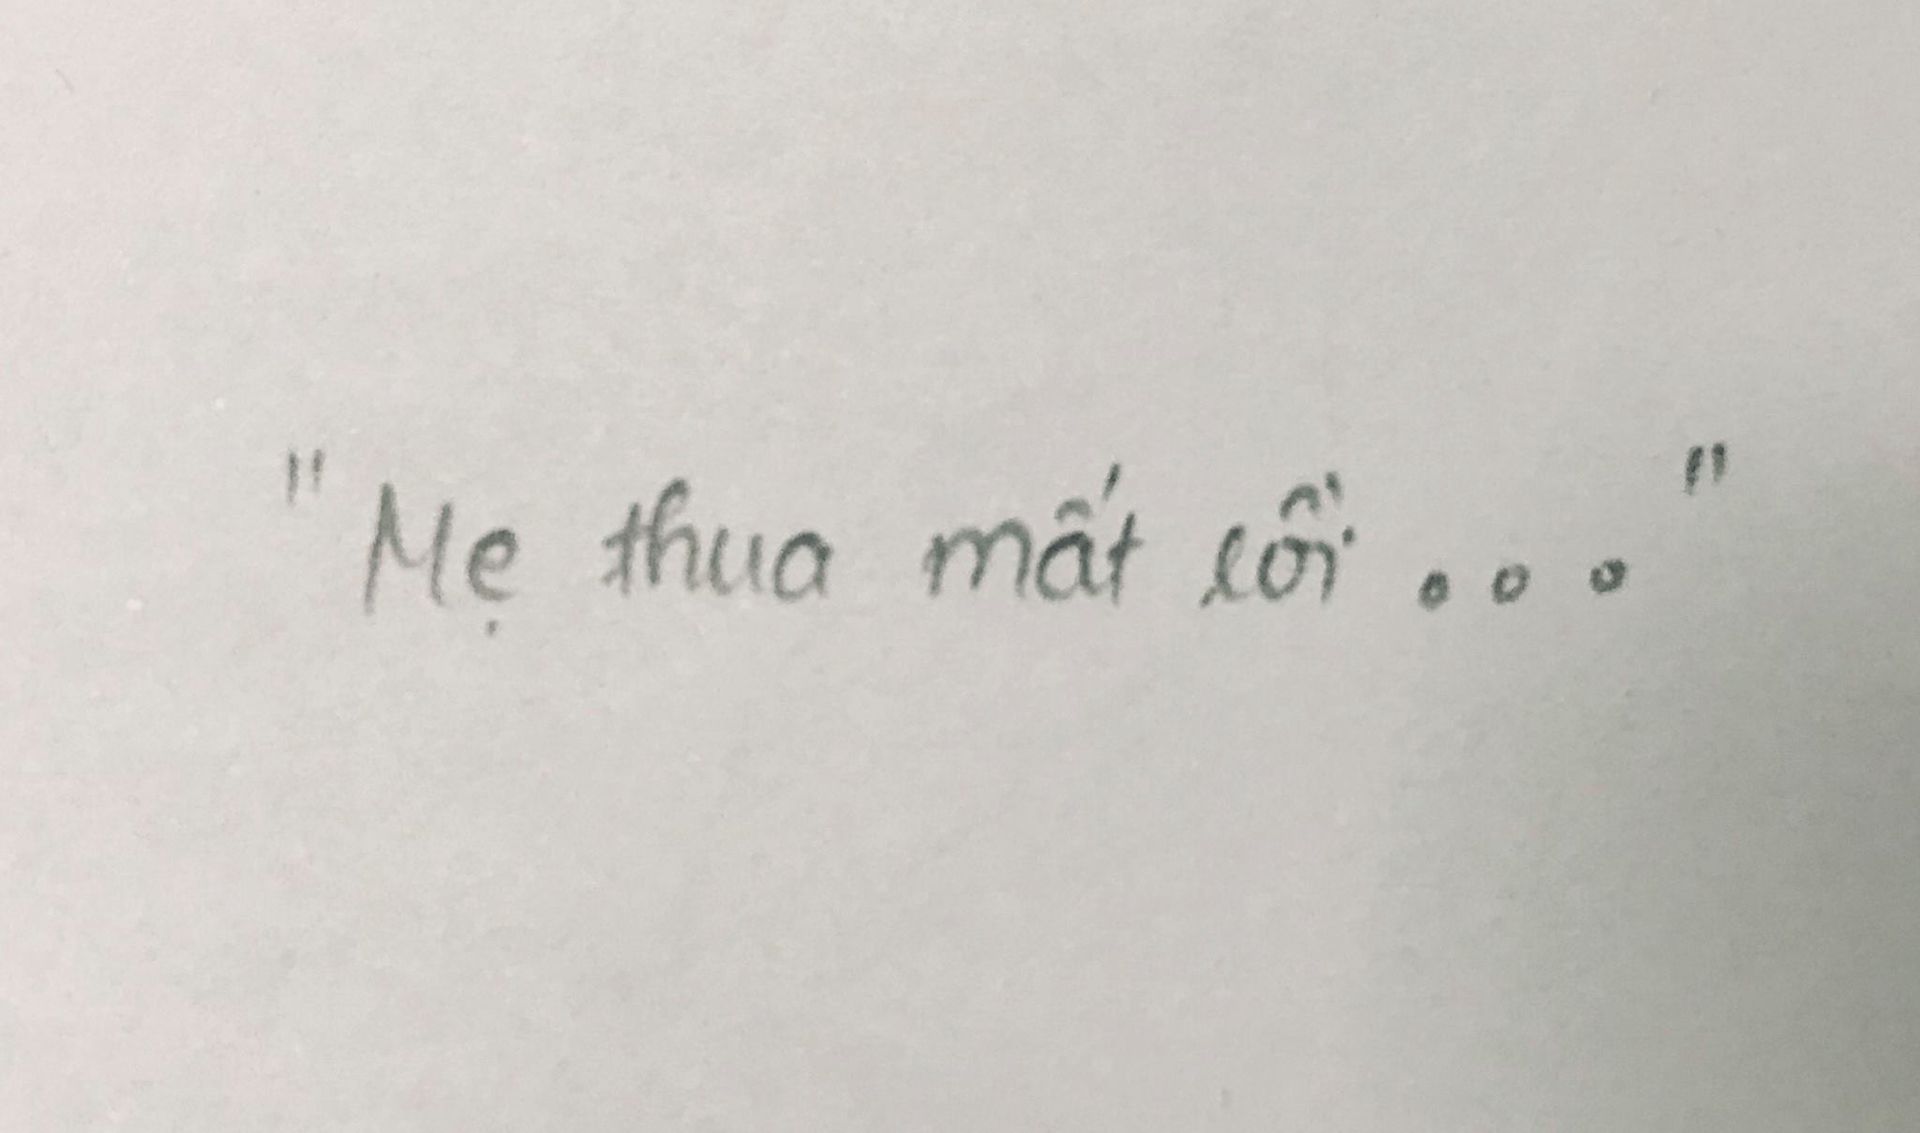 "Mẹ thua mất rồi..."